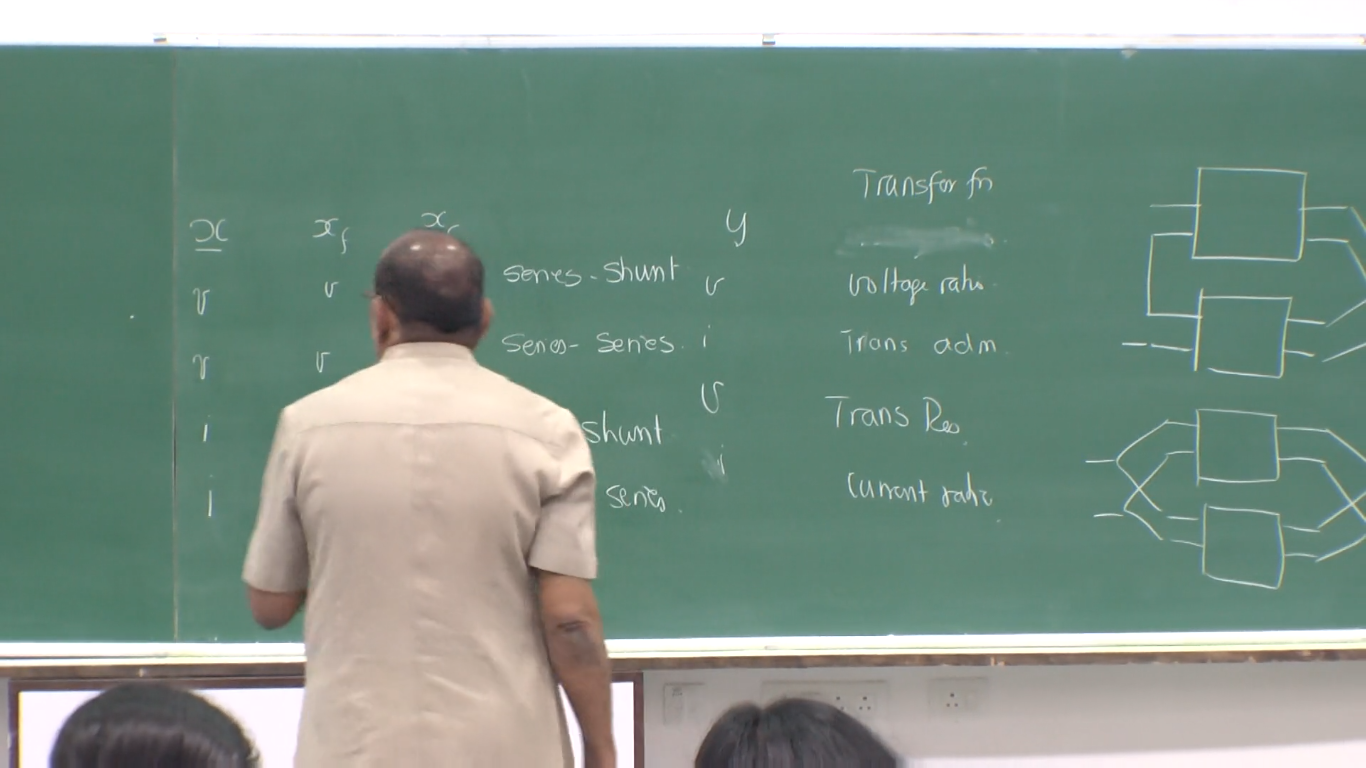 Transfor fn
x x_f x y
v v series-shunt v voltage ratio
v v series-series. i Trans adm.
i shunt v Trans Res.
i series. i Current ratio.